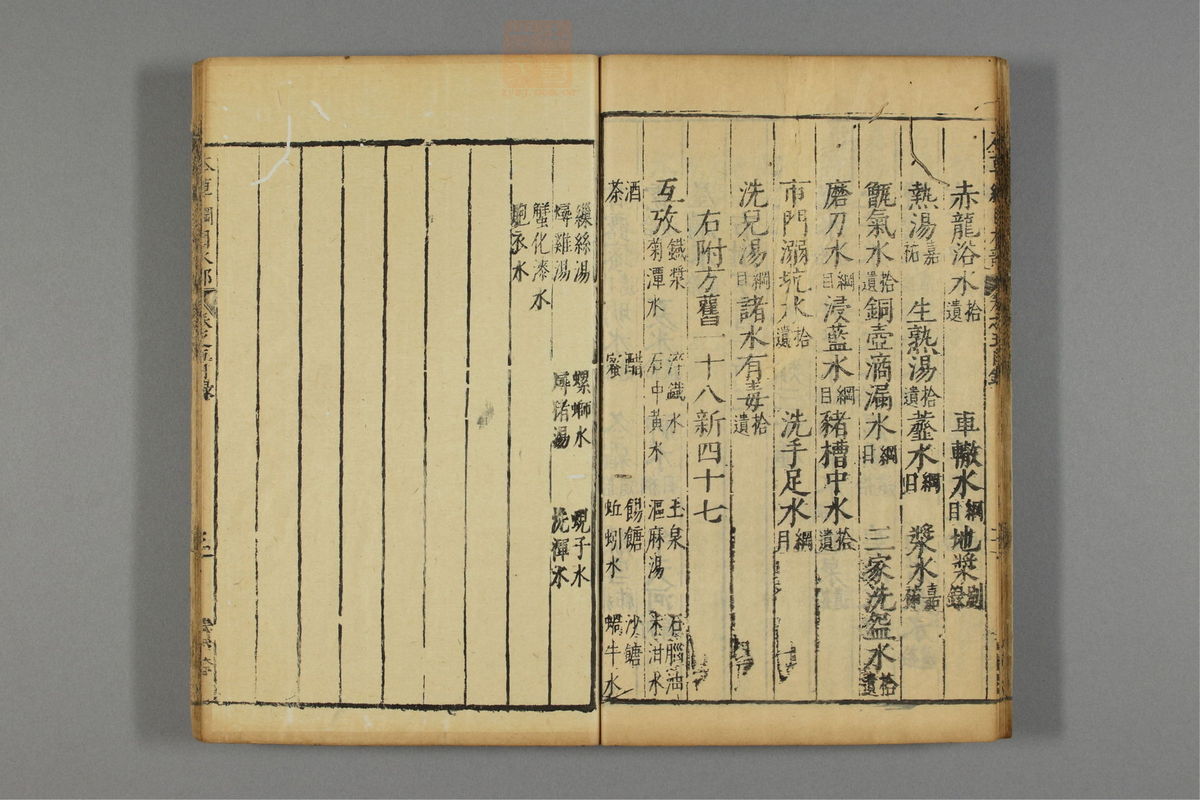 赤龍浴水拾遺 車轍水綱目 地漿別錄
熱湯嘉祐 生熟湯拾遺 虀水綱目 漿水嘉祐
甑氣水拾遺 銅壺滴漏水綱目 三家洗盌水拾遺
磨刀水綱目 浸藍水綱目 豬槽中水拾遺
市門溺坑水拾遺 洗手足水綱目
洗兒湯綱目 諸水有毒拾遺
右附方舊二十八新四十七
互攷 鐵漿 淬鐵水 玉泉 石腦油
菊潭水 石中黃水 漚麻湯 米泔水
酒 醋 餳餹 沙餹
茶 蜜 蚯蚓水 蝸牛水
繅絲湯 螺螄水 蜆子水
燖雞湯 燖豬湯 洗褌水
蟹化漆水
胞衣水